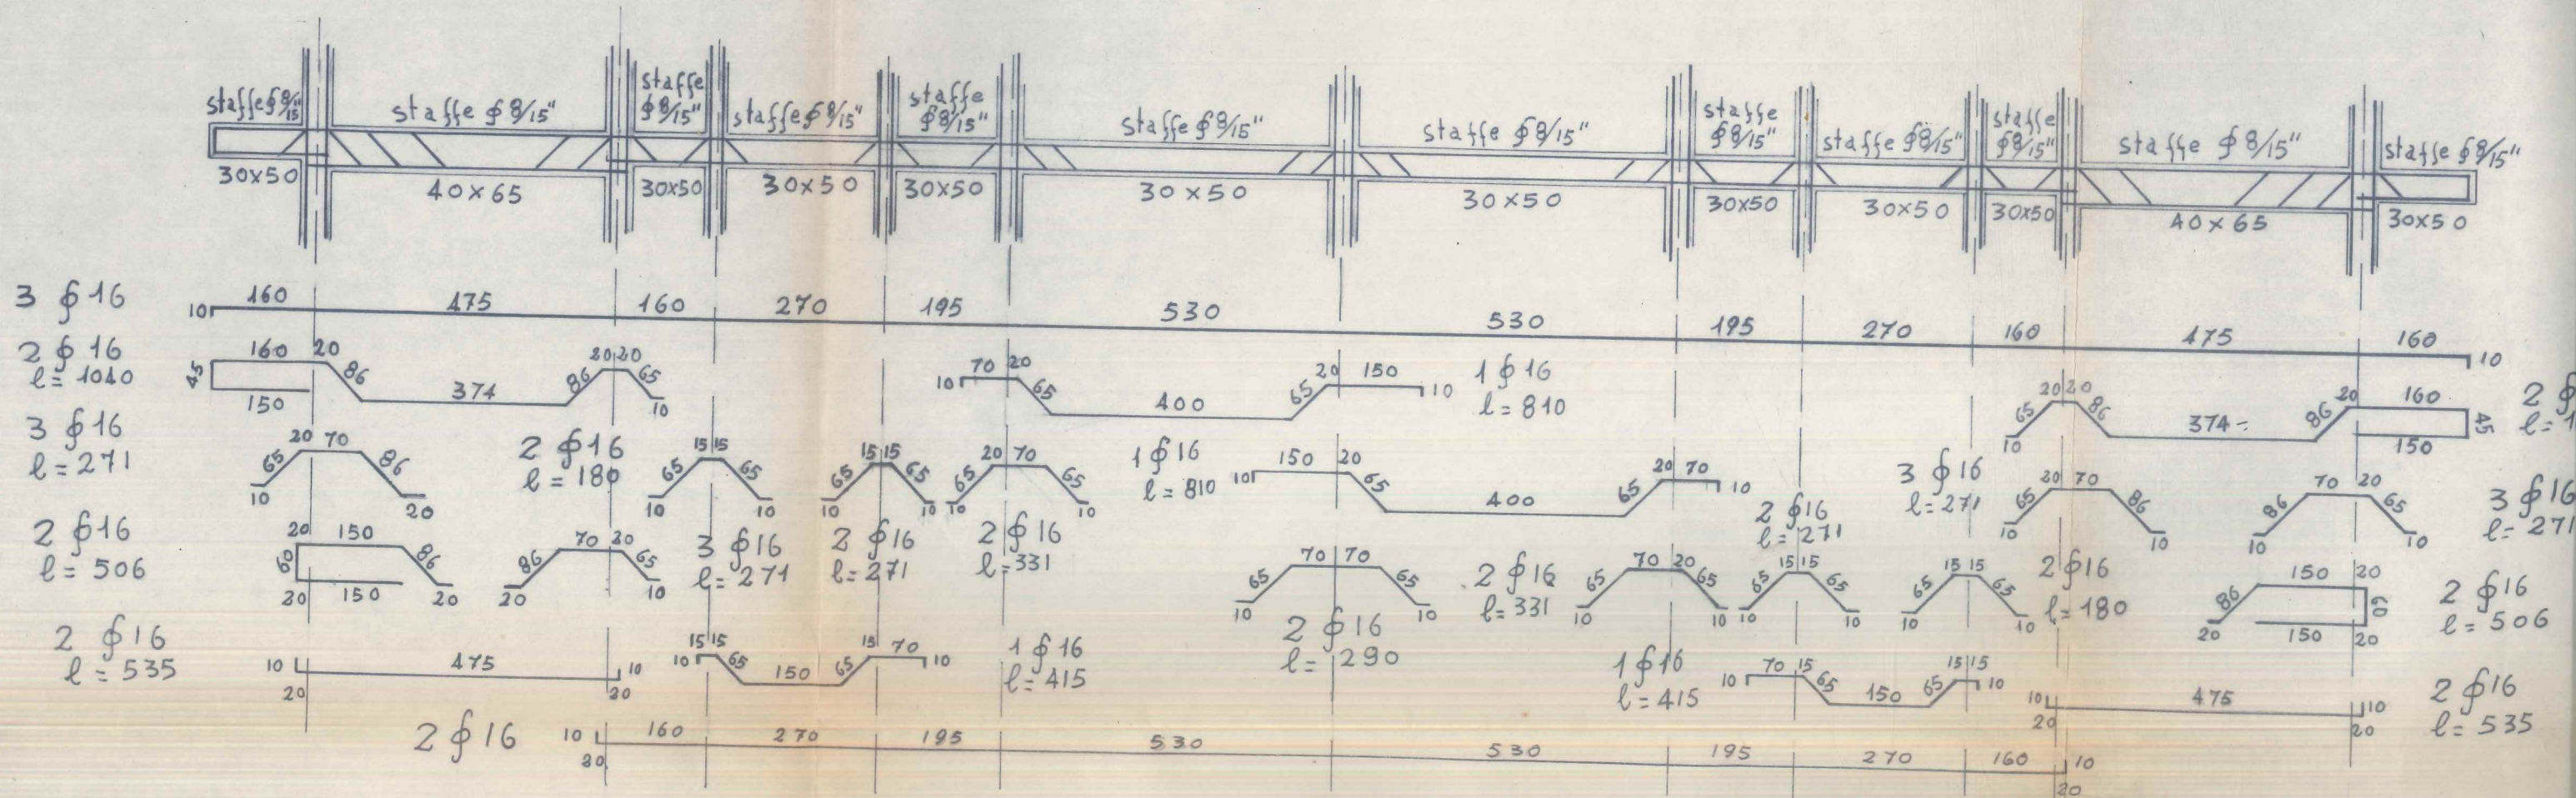 staffe ϕ 8/15 staffe ϕ 8/15" staffe ϕ 8/15" staffe ϕ 8/15" staffe ϕ 8/15" staffe ϕ 8/15" staffe ϕ 8/15" staffe ϕ 8/15" staffe ϕ 8/15" staffe ϕ 8/15" staffe ϕ 8/15" staffe ϕ 8/15"
30x50 40x65 30x50 30x50 30x50 30x50 30x50 30x50 30x50 30x50 40x65 30x50
3 ϕ 16 10 160 475 160 270 195 530 530 195 270 160 475 160 10
2 ϕ 16
l= 1040
160 20 45 150 86 374 86 20 20 65 10
10 70 20 65 400 65 20 150 10
1 ϕ 16
l= 810
10 65 20 20 86 374 86 20 160 45 150
2 ϕ
l= 1
3 ϕ 16
l= 271
10 65 20 70 86 20
2 ϕ 16
l= 180
10 65 15 15 65 10
10 65 15 15 65 10
10 65 20 70 65 10
1 ϕ 16
l= 810
10 150 20 65 400 65 20 70 10
3 ϕ 16
l= 271
10 65 20 70 86 10
10 86 70 20 65 10
3 ϕ 16
l= 271
2 ϕ 16
l= 506
20 150 60 86 20 150 20
20 86 70 20 65 10
3 ϕ 16
l= 271
2 ϕ 16
l= 271
2 ϕ 16
l= 331
10 65 70 70 65 10
2 ϕ 16
l= 290
2 ϕ 16
l= 331
10 65 70 20 65 10
2 ϕ 16
l= 271
10 65 15 15 65 10
10 65 15 15 65 10
2 ϕ 16
l= 180
20 86 150 20 60 150 20
2 ϕ 16
l= 506
2 ϕ 16
l= 535
10 20 475 10 20
10 15 15 65 150 65 15 70 10
1 ϕ 16
l= 415
1 ϕ 16
l= 415
10 70 15 65 150 65 15 15 10
10 20 475 10 20
2 ϕ 16
l= 535
2 ϕ 16 10 20 160 270 195 530 530 195 270 160 10 20